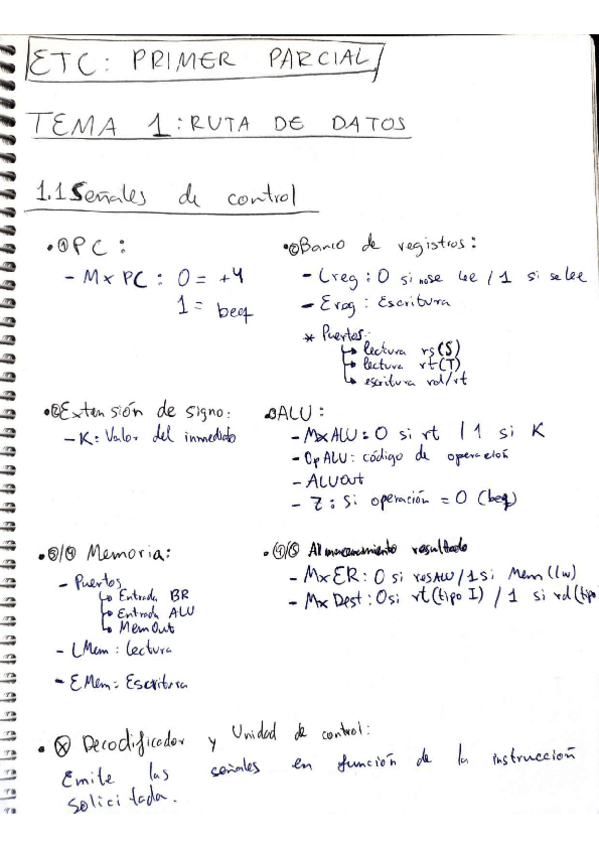 ETC: PRIMER PARCIAL
TEMA 1: RUTA DE DATOS
1.1 Señales de control
• ① PC:
- Mx PC: 0 = +4
1 = beq
• ② Banco de registros:
- Lreg: 0 si no se lee / 1 si se lee
- Ereg: Escritura
* Puertos:
↳ lectura rs (S)
↳ lectura rt (T)
↳ escritura rd/rt
• ② Extensión de signo:
- K: Valor del inmediato
③ ALU:
- MxALU: 0 si rt / 1 si K
- OpALU: código de operación
- ALUOut
- Z: si operación = 0 (beq)
• ③/④ Memoria:
- Puertos
↳ Entrada BR
↳ Entrada ALU
↳ MemOut
- LMem: Lectura
- EMem: Escritura
• ④/⑤ Almacenamiento resultado
- MxER: 0 si resALU / 1 si Mem (lw)
- MxDest: 0 si rt (tipo I) / 1 si rd (tipo
• ⓧ Decodificador y Unidad de control:
Emite las señales en función de la instrucción
solicitada.